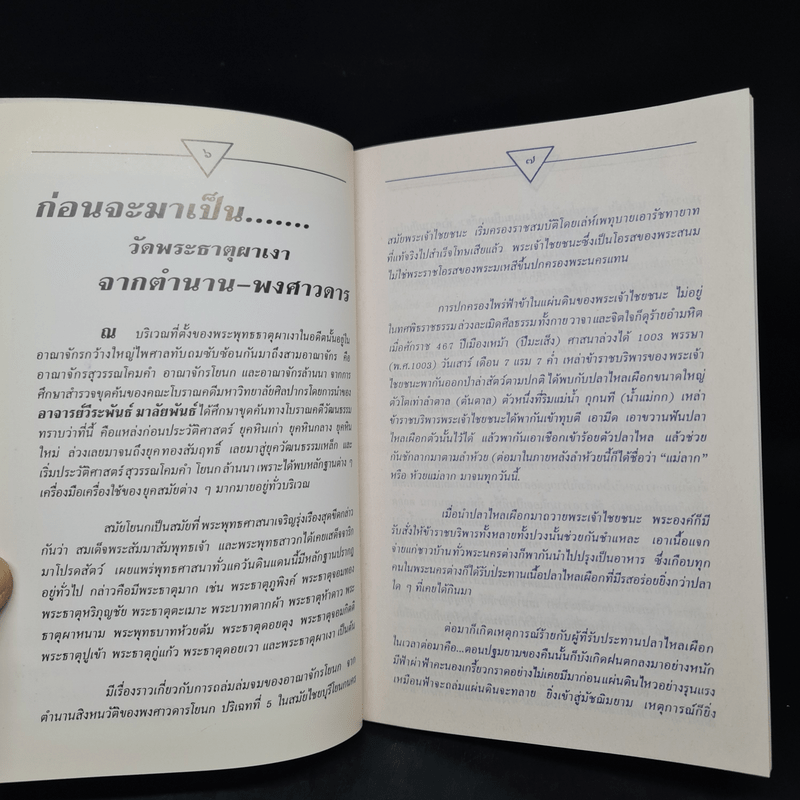 ๖
ก่อนจะมาเป็น.......
วัดพระธาตุผาเงา
จากตำนาน-พงศาวดาร
ณ บริเวณที่ตั้งของพระพุทธธาตุผาเงาในอดีตนั้นอยู่ใน
อาณาจักรกว้างใหญ่ไพศาลทับถมซับซ้อนกันมาถึงสามอาณาจักร คือ
อาณาจักรสุวรรณโคมคำ อาณาจักรโยนก และอาณาจักรล้านนา จากการ
ศึกษาสำรวจขุดค้นของคณะโบราณคดีมหาวิทยาลัยศิลปากรโดยการนำของ
อาจารย์วีระพันธ์ มาลัยพันธ์ ได้ศึกษาขุดค้นทางโบราณคดีวัฒนธรรม
ทราบว่าที่นี้ คือแหล่งก่อนประวัติศาสตร์ ยุคหินเก่า ยุคหินกลาง ยุคหิน
ใหม่ ล่วงเลยมาจนถึงยุคทองสัมฤทธิ์ เลยมาสู่ยุควัฒนธรรมเหล็ก และ
เริ่มประวัติศาสตร์สุวรรณโคมคำ โยนก ล้านนา เพราะได้พบหลักฐานต่าง ๆ
เครื่องมือเครื่องใช้ของยุคสมัยต่าง ๆ มากมายอยู่ทั่วบริเวณ
สมัยโยนกเป็นสมัยที่พระพุทธศาสนาเจริญรุ่งเรืองสุดขีดกล่าว
กันว่า สมเด็จพระสัมมาสัมพุทธเจ้า และพระพุทธสาวกได้เคยเสด็จจาริก
มาโปรดสัตว์ เผยแพร่พุทธศาสนาทั่วแคว้นดินแดนนี้มีหลักฐานปรากฏ
อยู่ทั่วไป กล่าวคือมีพระธาตุมาก เช่น พระธาตุภูพิงค์ พระธาตุจอมทอง
พระธาตุหริภุญชัย พระธาตุตะเมาะ พระบาทตากผ้า พระธาตุทำดาว พระ
ธาตุผาหนาม พระพุทธบาทห้วยต้ม พระธาตุดอยตุง พระธาตุจอมกิตติ
พระธาตุปูเข้า พระธาตุภู่แก้ว พระธาตุดอยเวา และพระธาตุผาเงา เป็นต้น
มีเรื่องราวเกี่ยวกับการถล่มล่มจมของอาณาจักรโยนก จาก
ตำนานสิงหนวัติของพงศาวดารโยนก ปริเฉทที่ 5 ในสมัยไชยบุรีโยนกนคร
๗
สมัยพระเจ้าไชยชนะ เริ่มครองราชสมบัติโดยเล่ห์เพทุบายเอารัชทายาท
ที่แท้จริงไปสำเร็จโทษเสียแล้ว พระเจ้าไชยชนะซึ่งเป็นโอรสของพระสนม
ไม่ใช่พระราชโอรสของพระมเหสีขึ้นปกครองพระนครแทน
การปกครองไพร่ฟ้าข้าในแผ่นดินของพระเจ้าไชยชนะ ไม่อยู่
ในทศพิธราชธรรม ล่วงละเมิดศีลธรรม ทั้งกาย วาจา และจิตใจก็ดุร้ายอำมหิต
เมื่อศักราช 467 ปีเมืองเหม้า (ปีมะเส็ง) ศาสนาล่วงได้ 1003 พรรษา
(พ.ศ.1003) วันเสาร์ เดือน 7 แรม 7 ค่ำ เหล่าข้าราชบริพารของพระเจ้า
ไชยชนะพากันออกป่าล่าสัตว์ตามปกติ ได้พบกับปลาไหลเผือกขนาดใหญ่
ตัวโตเท่าลำตาล (ต้นตาล) ตัวหนึ่งที่ริมแม่น้ำ กุกนที (น้ำแม่กก) เหล่า
ข้าราชบริพารพระเจ้าไชยชนะได้พากันเข้าทุบตี เอามีด เอาขวานฟันปลา
ไหลเผือกตัวนั้นไว้ได้ แล้วพากันเอาเชือกเข้าร้อยตัวปลาไหล แล้วช่วย
กันชักลากมาตามลำห้วย (ต่อมาในภายหลังลำห้วยนี้ก็ได้ชื่อว่า “แม่ลาก”
หรือ ห้วยแม่ลาก มาจนทุกวันนี้.
เมื่อนำปลาไหลเผือกมาถวายพระเจ้าไชยชนะ พระองค์ก็มี
รับสั่งให้ข้าราชบริพารทั้งหลายทั้งปวงนั้นช่วยกันชำแหละ เอาเนื้อแจก
จ่ายแก่ชาวบ้านทั่วพระนครต่างก็พากันนำไปปรุงเป็นอาหาร ซึ่งเกือบทุก
คนในพระนครต่างก็ได้รับประทานเนื้อปลาไหลเผือกที่มีรสอร่อยยิ่งกว่าปลา
ใด ๆ ที่เคยได้กินมา
ต่อมาก็เกิดเหตุการณ์ร้ายกับผู้ที่รับประทานปลาไหลเผือก
ในเวลาต่อมาคือ...ตอนปฐมยามของคืนนั้นก็บังเกิดฝนตกลงมาอย่างหนัก
มีฟ้าผ่าฟ้าคะนองเกรี้ยวกราดอย่างไม่เคยมีมาก่อนแผ่นดินไหวอย่างรุนแรง
เหมือนฟ้าจะถล่มแผ่นดินจะทลาย ยิ่งเข้าสู่มัชฌิมยาม เหตุการณ์ก็ยิ่ง